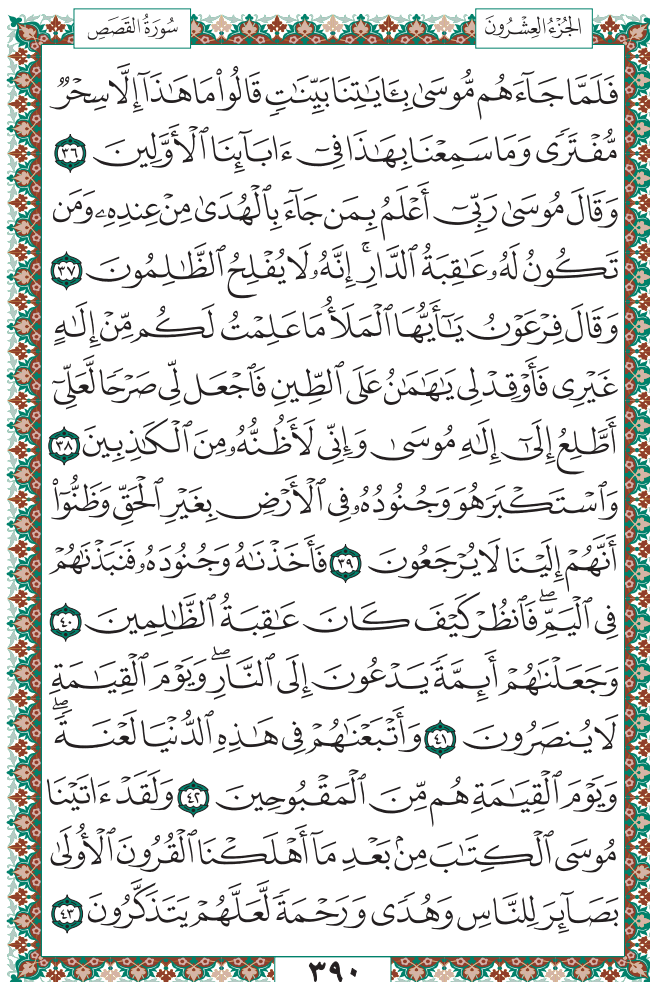 الجُزْءُ العِشْرُونَ سُورَةُ القَصَصِ
فَلَمَّا جَآءَهُم مُّوسَىٰ بِـَٔايَٰتِنَا بَيِّنَٰتٖ قَالُواْ مَا هَٰذَآ إِلَّا سِحۡرٞ
مُّفۡتَرٗى وَمَا سَمِعۡنَا بِهَٰذَا فِيٓ ءَابَآئِنَا ٱلۡأَوَّلِينَ ٣٦
وَقَالَ مُوسَىٰ رَبِّيٓ أَعۡلَمُ بِمَن جَآءَ بِٱلۡهُدَىٰ مِنۡ عِندِهِۦ وَمَن
تَكُونُ لَهُۥ عَٰقِبَةُ ٱلدَّارِۚ إِنَّهُۥ لَا يُفۡلِحُ ٱلظَّٰلِمُونَ ٣٧
وَقَالَ فِرۡعَوۡنُ يَٰٓأَيُّهَا ٱلۡمَلَأُ مَا عَلِمۡتُ لَكُم مِّنۡ إِلَٰهٍ
غَيۡرِي فَأَوۡقِدۡ لِي يَٰهَٰمَٰنُ عَلَى ٱلطِّينِ فَٱجۡعَل لِّي صَرۡحٗا لَّعَلِّيٓ
أَطَّلِعُ إِلَىٰٓ إِلَٰهِ مُوسَىٰ وَإِنِّي لَأَظُنُّهُۥ مِنَ ٱلۡكَٰذِبِينَ ٣٨
وَٱسۡتَكۡبَرَ هُوَ وَجُنُودُهُۥ فِي ٱلۡأَرۡضِ بِغَيۡرِ ٱلۡحَقِّ وَظَنُّوٓاْ
أَنَّهُمۡ إِلَيۡنَا لَا يُرۡجَعُونَ ٣٩ فَأَخَذۡنَٰهُ وَجُنُودَهُۥ فَنَبَذۡنَٰهُمۡ
فِي ٱلۡيَمِّۖ فَٱنظُرۡ كَيۡفَ كَانَ عَٰقِبَةُ ٱلظَّٰلِمِينَ ٤٠
وَجَعَلۡنَٰهُمۡ أَئِمَّةٗ يَدۡعُونَ إِلَى ٱلنَّارِۖ وَيَوۡمَ ٱلۡقِيَٰمَةِ
لَا يُنصَرُونَ ٤١ وَأَتۡبَعۡنَٰهُمۡ فِي هَٰذِهِ ٱلدُّنۡيَا لَعۡنَةٗۖ
وَيَوۡمَ ٱلۡقِيَٰمَةِ هُم مِّنَ ٱلۡمَقۡبُوحِينَ ٤٢ وَلَقَدۡ ءَاتَيۡنَا
مُوسَى ٱلۡكِتَٰبَ مِنۢ بَعۡدِ مَآ أَهۡلَكۡنَا ٱلۡقُرُونَ ٱلۡأُولَىٰ
بَصَآئِرَ لِلنَّاسِ وَهُدٗى وَرَحۡمَةٗ لَّعَلَّهُمۡ يَتَذَكَّرُونَ ٤٣
٣٩٠